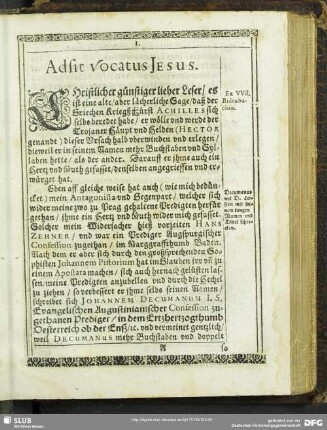 I.
Adsit vocatus JESUS.
CHristlicher günstiger lieber Leser/ es
ist eine alte/ aber lächerliche Sage/ daß der
Griechen Kriegs Fürst ACHILLES sich
selbs beredet habe / er wölle und werde der
Trojaner Häupt und Helden (HECTOR
genandt) dieser Ursach hald uberwinden und erlegen/
dieweil er in seinem Namen mehr Buchstaben und Syl-
laben hette / als der ander. Darauff er ihme auch ein
Hertz und Muth gefasset/ denselben angegrieffen und er-
würget hat.
Eben auff gleiche weise hat auch (wie mich bedün-
cket) mein Antagonista und Gegenpart / welcher sich
wider meine zwo zu Prag gehaltene Predigten herfür
gethan/ ihme ein Hertz und Muth wider mich gefasset.
Solcher mein Widersacher hieß vorzeiten HANS
ZEHNER / und war ein Prediger Augspurgischer
Confession zugethan / im Marggraffthumb Baden.
Nach dem er aber sich durch den großsprechenden So-
phisten Johannem Pistorium hat im Glauben irr uñ zu
einem Apostata machen/ sich auch hernach gelüsten las-
sen/ meine Predigten anzubellen und durch die Hechel
zu ziehen / so verbessert er ihme selbs seinen Namen/
schreibet sich JOHANNEM DECUMANUM I. S.
Evangelischen Augustinianischer Confession zu-
gethanen Prediger/ in dem Ertzhertzogthumb
Oesterreich ob der Enß/ ꝛc. und vermeinet gentzlich/
weil DECUMANUS mehr Buchstaben und doppelt
A
so
Ex VVil.
Decumanus
wil D.
sern mit sei-
nem langen
Namen und
Titel schre-
cken.
SLUB
Wir führen Wissen.
http://digital.slub-dresden.de/id
gefördert von der
Deutschen Forschungsgemeinschaft
DFG